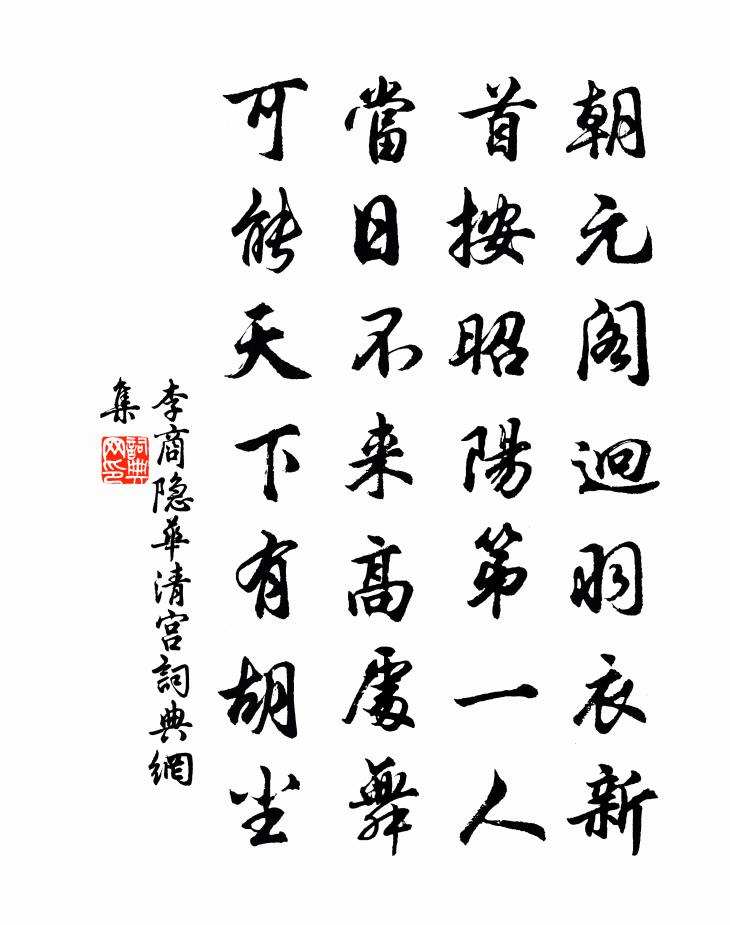 朝元閣迥羽衣新
首按昭陽第一人
當日不来高處舞
可能天下有胡尘
李商隐華清宫詞典網
集
詞典網印